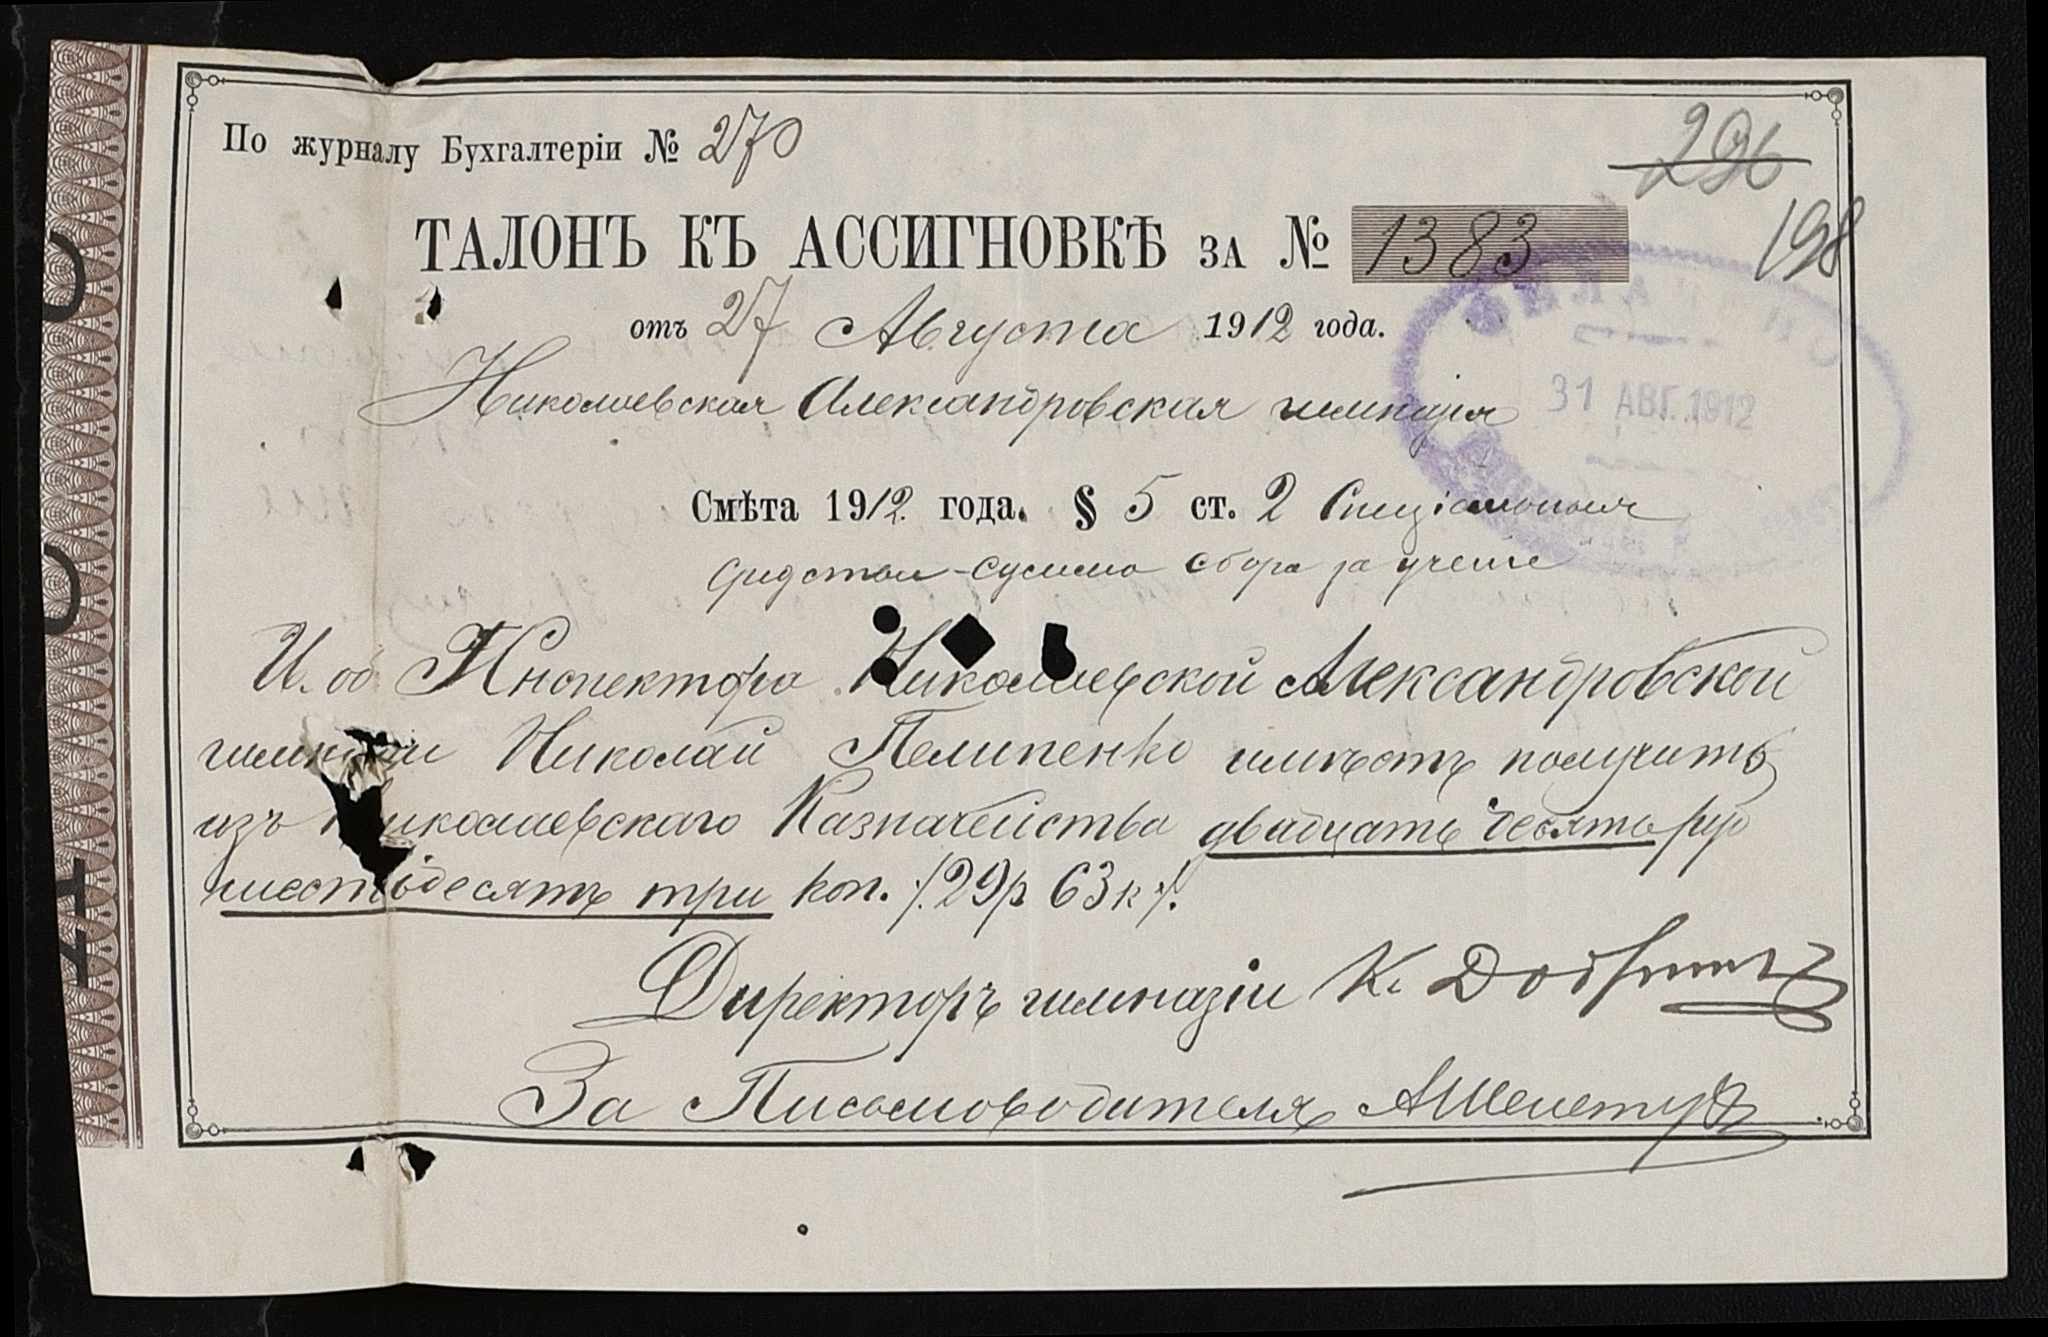 По журналу Бухгалтеріи № 270
296
198
ТАЛОНЪ КЪ АССИГНОВКѢ ЗА № 1383
отъ 27 Августа 1912 года.
Николаевская Александровская гимназія
31 АВГ. 1912
Смѣта 1912 года. § 5 ст. 2 Спеціальныя
средства - сумма сбора за ученіе
И. об Инспектора Николаевской Александровской
гимназіи Николай Пелипенко имѣетъ получить
изъ Николаевскаго Казначейства двадцать девять руб
шестьдесятъ три коп. /. 29 р 63 к /.
Директоръ гимназіи К.
За Письмоводителя